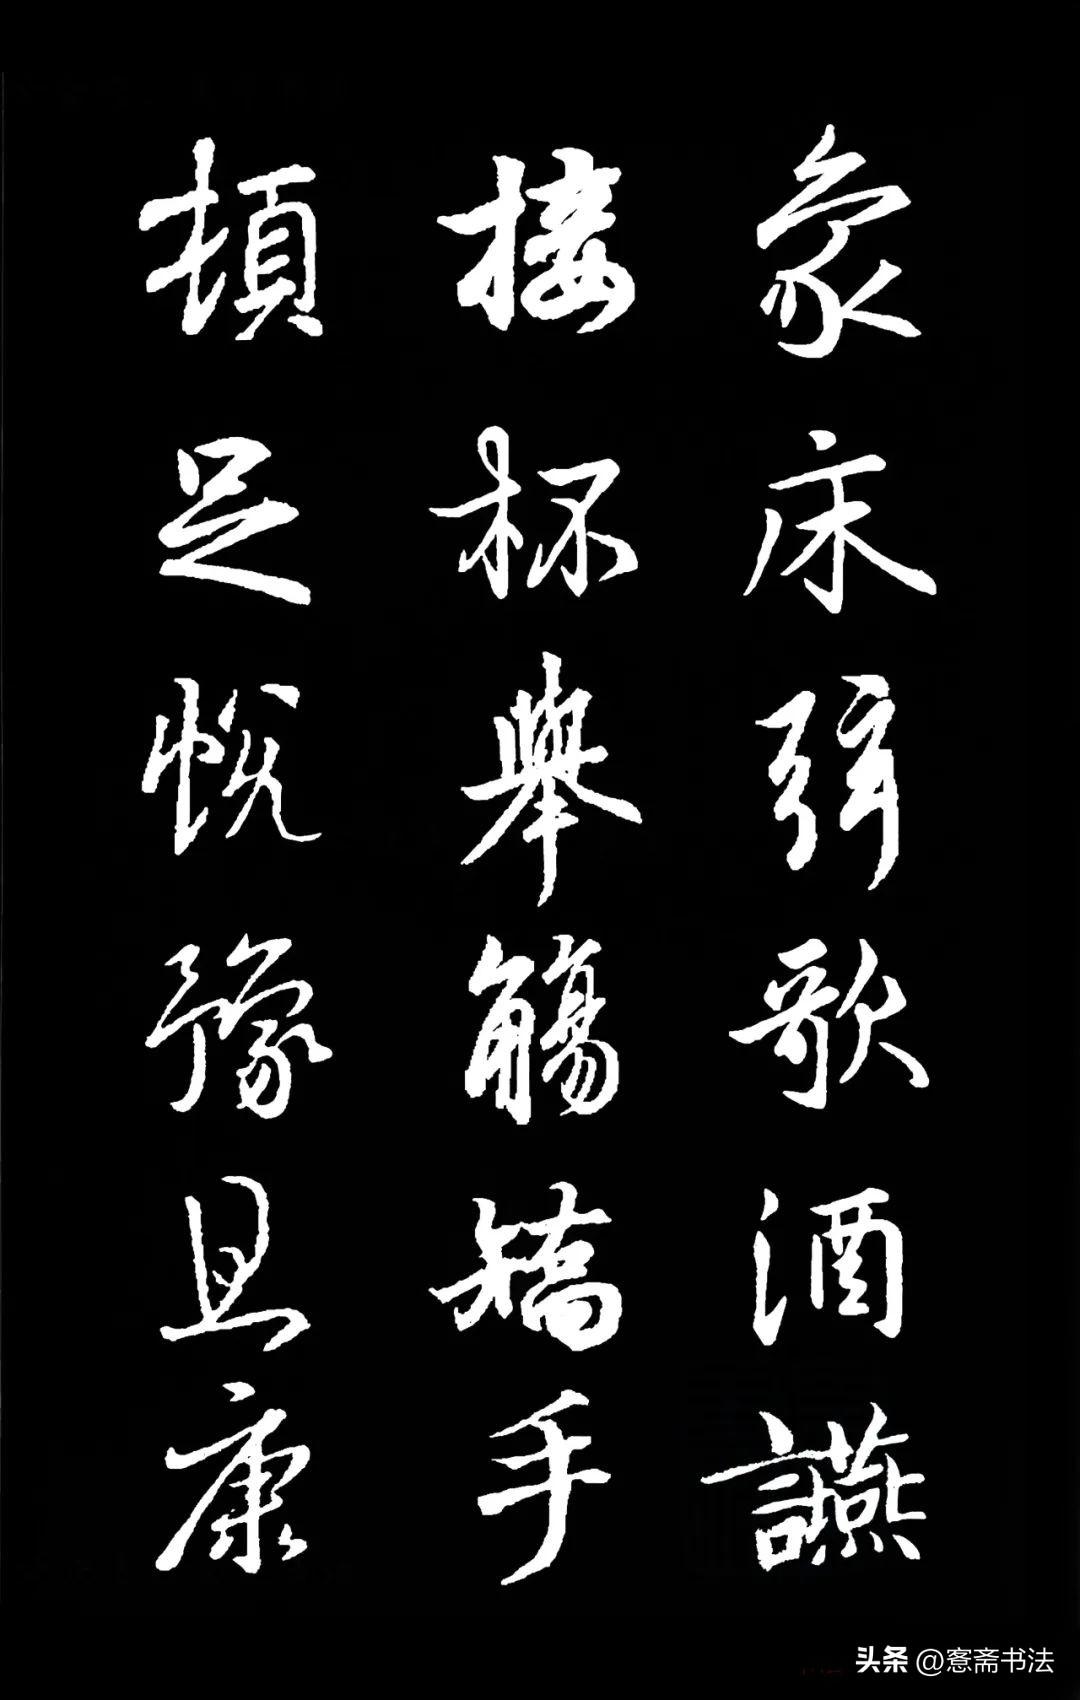 象床弦歌酒讌
接杯舉觴矯手
頓足悦豫且康
头条@愙斋书法